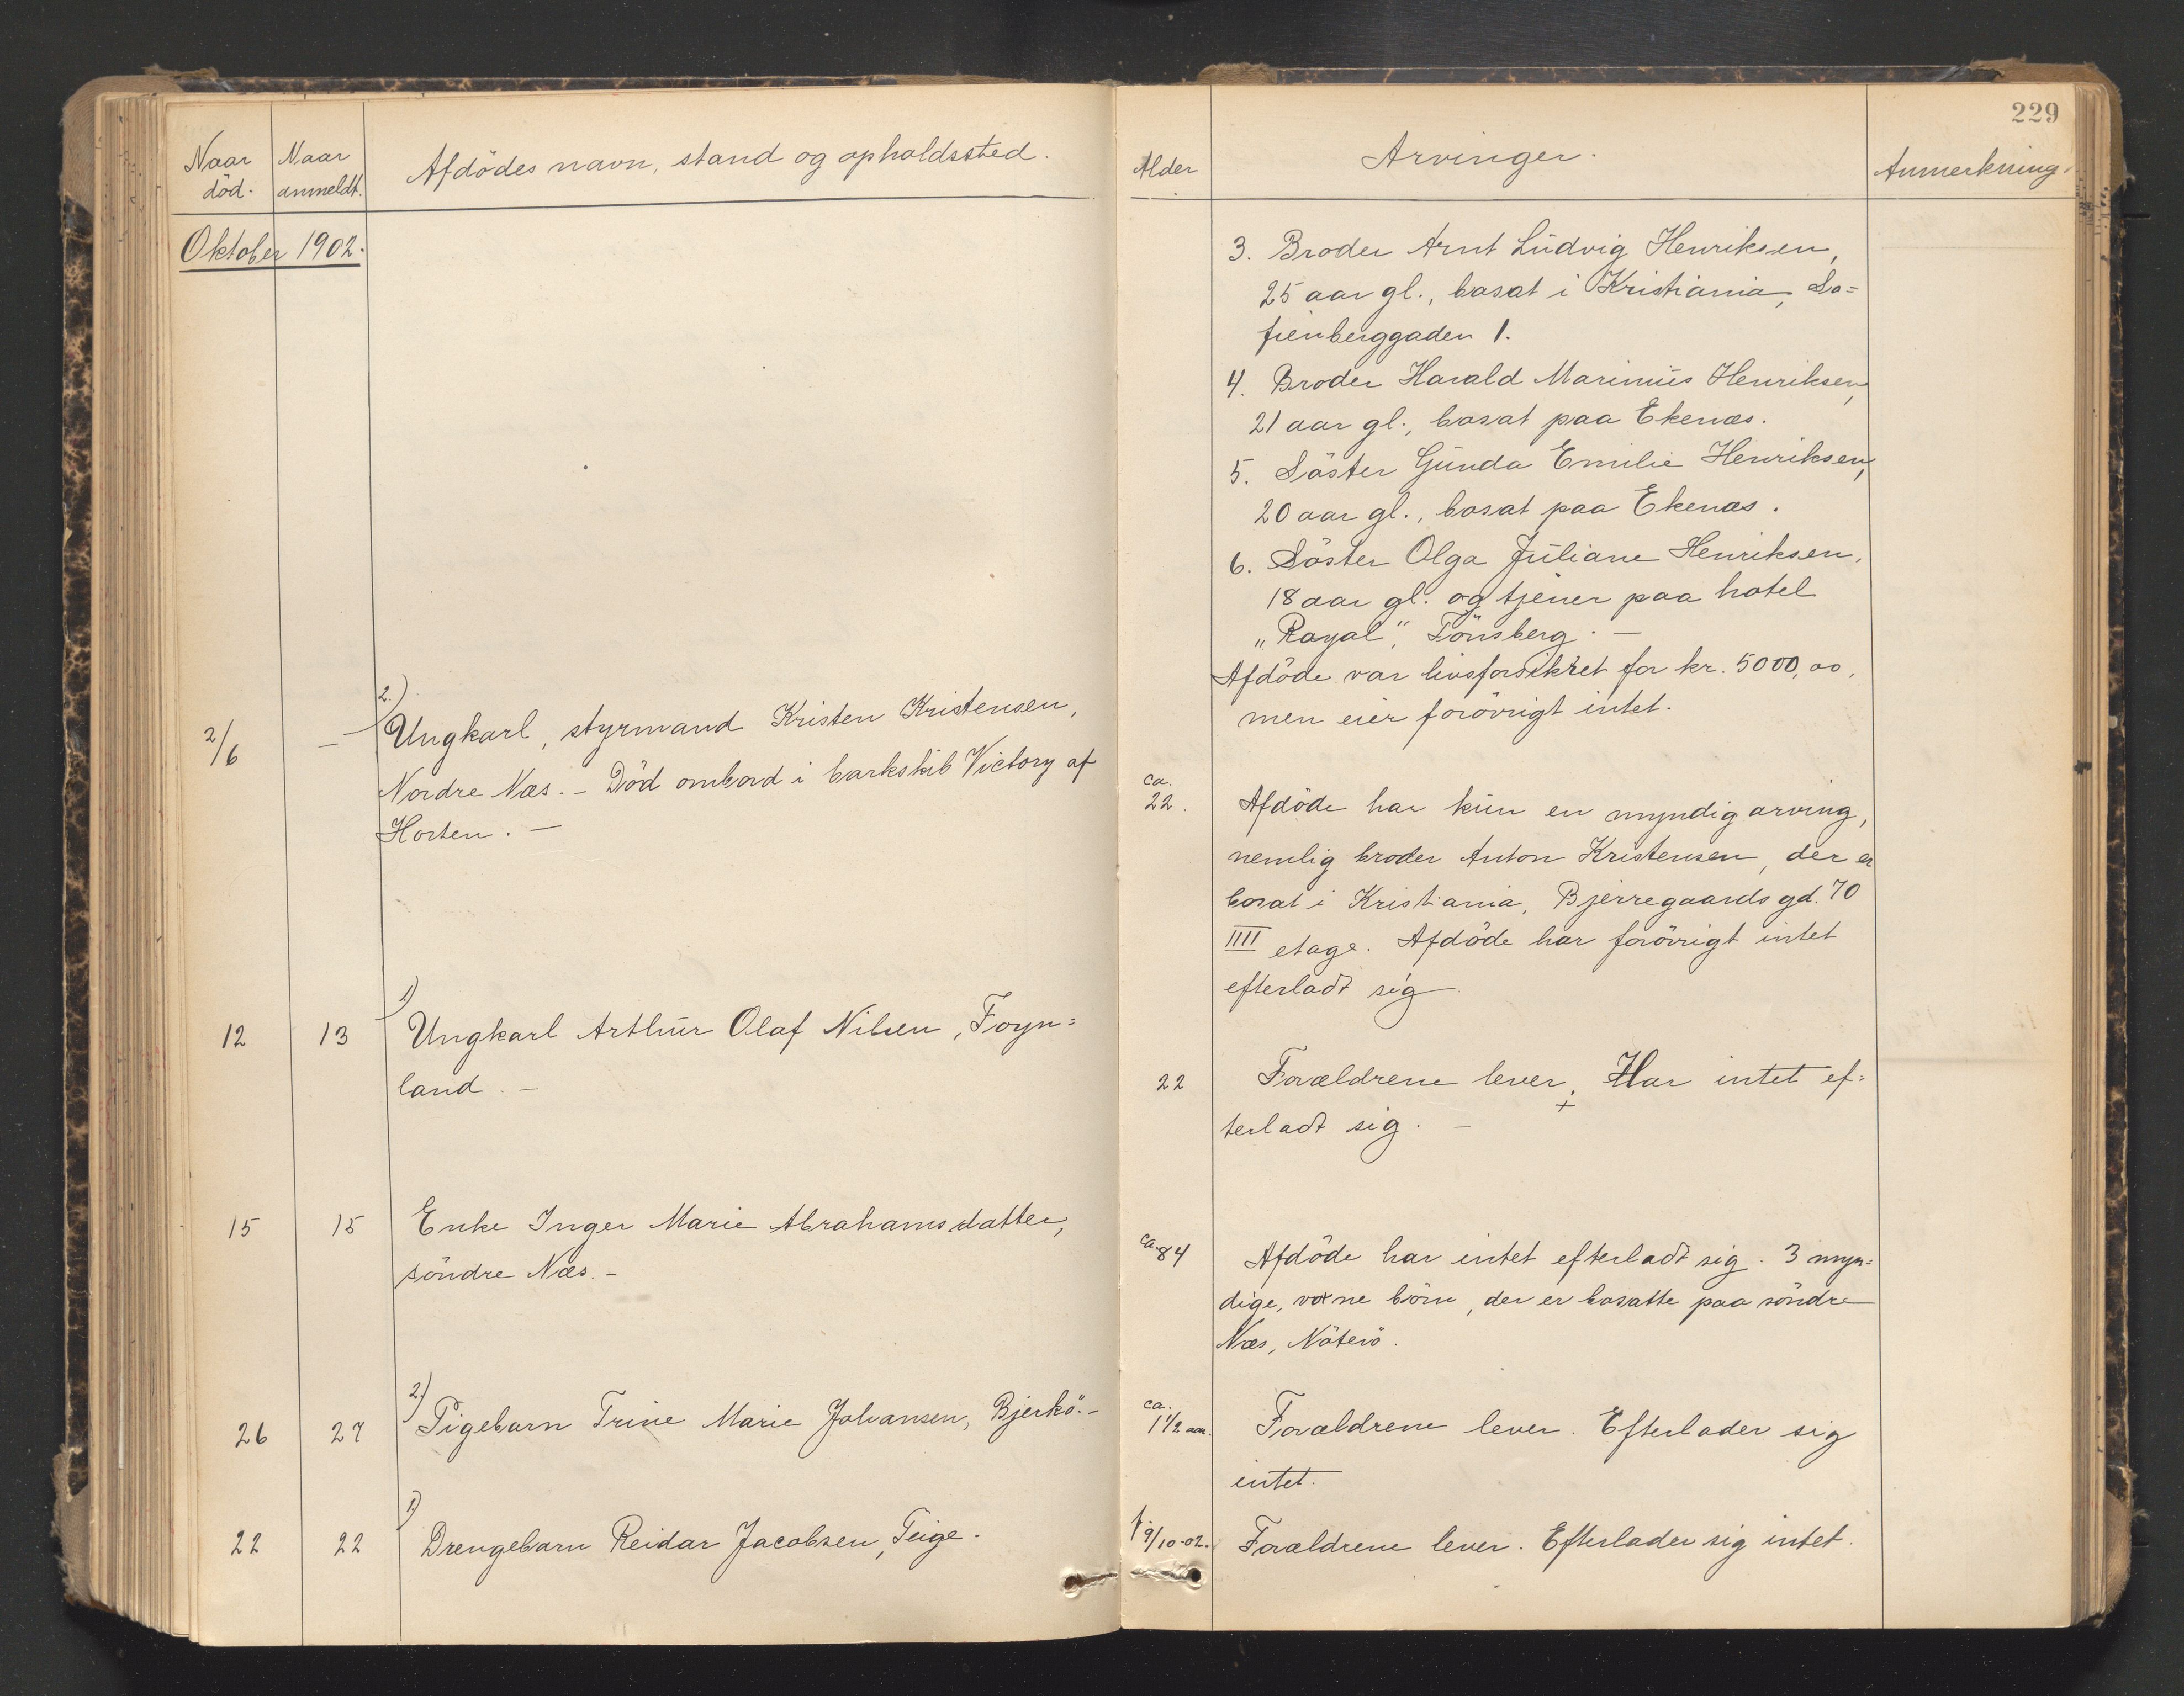 Naar død.
Naar anmeldt.
Afdödes navn, stand og opholdssted.
Oktober 1902.
2/6
—
2.)
Ungkarl, styrmand Kristen Kristensen,
Nordre Næs. – Död ombord i barkskib Victory af
Horten. —
12
13
1)
Ungkarl Arthur Olaf Nilsen, Foyn=
land. —
15
15
Enke Inger Marie Abrahamsdatter,
söndre Næs. –
26
27
2)
Pigebarn Trine Marie Johansen, Bjerkö. –
22
22
1)
Drengebarn Reidar Jacobsen, Teige.
229
Alder
Arvinger.
Anmerkning.
3. Broder Arnt Ludvig Henriksen,
25 aar gl., bosat i Kristiania, So=
fienberggaden 1.
4. Broder Harald Marinius Henriksen,
21 aar gl., bosat paa Ekenæs.
5. Söster Gunda Emilie Henriksen,
20 aar gl., bosat paa Ekenæs.
6. Söster Olga Juliane Henriksen,
18 aar gl. og tjener paa hotel
„Royal“, Tönsberg. —
Afdöde var livsforsikret for kr. 5000,00,
men eier forövrigt intet.
ca.
22.
Afdöde har kun en myndig arving,
nemlig broder Anton Kristensen, der er
bosat i Kristiania, Bjerregaards gd. 70
IIII etage. Afdöde har forövrigt intet
efterladt sig.
22
Forældrene lever. Har intet ef=
+
terladt sig. —
ca. 84
Afdöde har intet efterladt sig. 3 myn=
dige, voxne börn, der er bosatte paa söndre
Næs, Nöterö.
ca.
1 1/2 aar.
Forældrene lever. Efterlader sig
intet.
f. 9/10-02.
Forældrene lever. Efterlader sig intet.